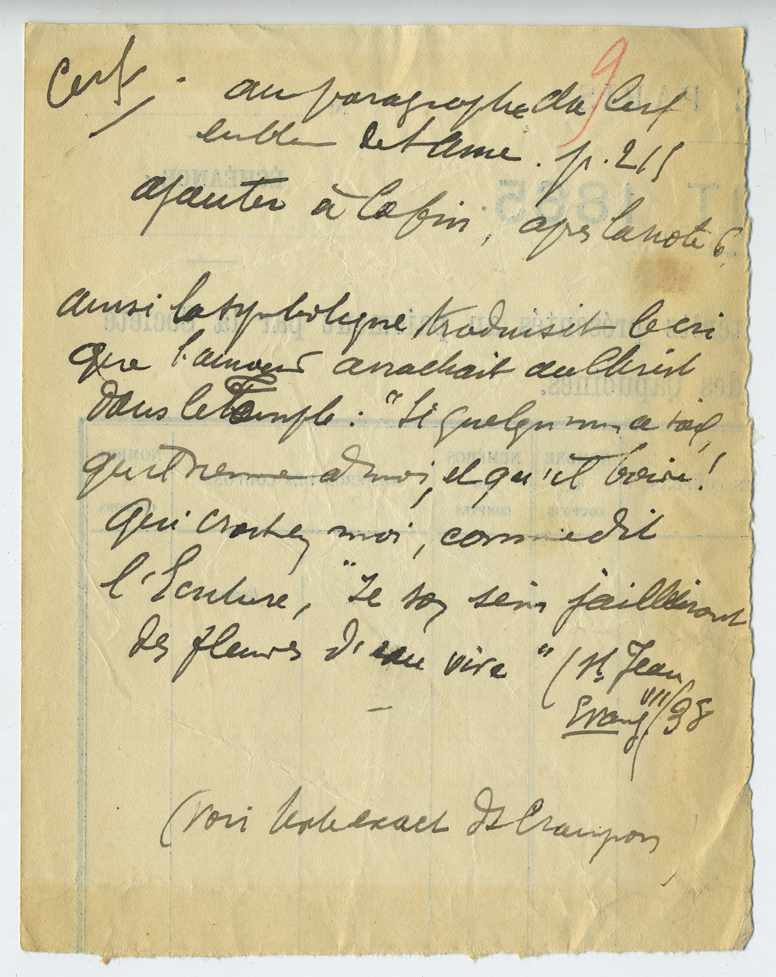 9
Cerf. au paragraphe du Cerf
emblème de l'âme. p. 215
ajouter à la fin, après la note 6
ainsi la symbolique traduisit le cri
que l'amour arrachait au Christ
dans le Temple : "Si quelqu'un a soif,
qu'il vienne à moi, et qu'il boive !
Qui croit en moi, comme dit
l'Ecriture, "de son sein jailliront
des fleuves d'eau vive" (St Jean
Evang. VII/38
(voir texte exact ds Crampon
ÉCHÉANCE
1865
des Capucines.
NUMÉROS